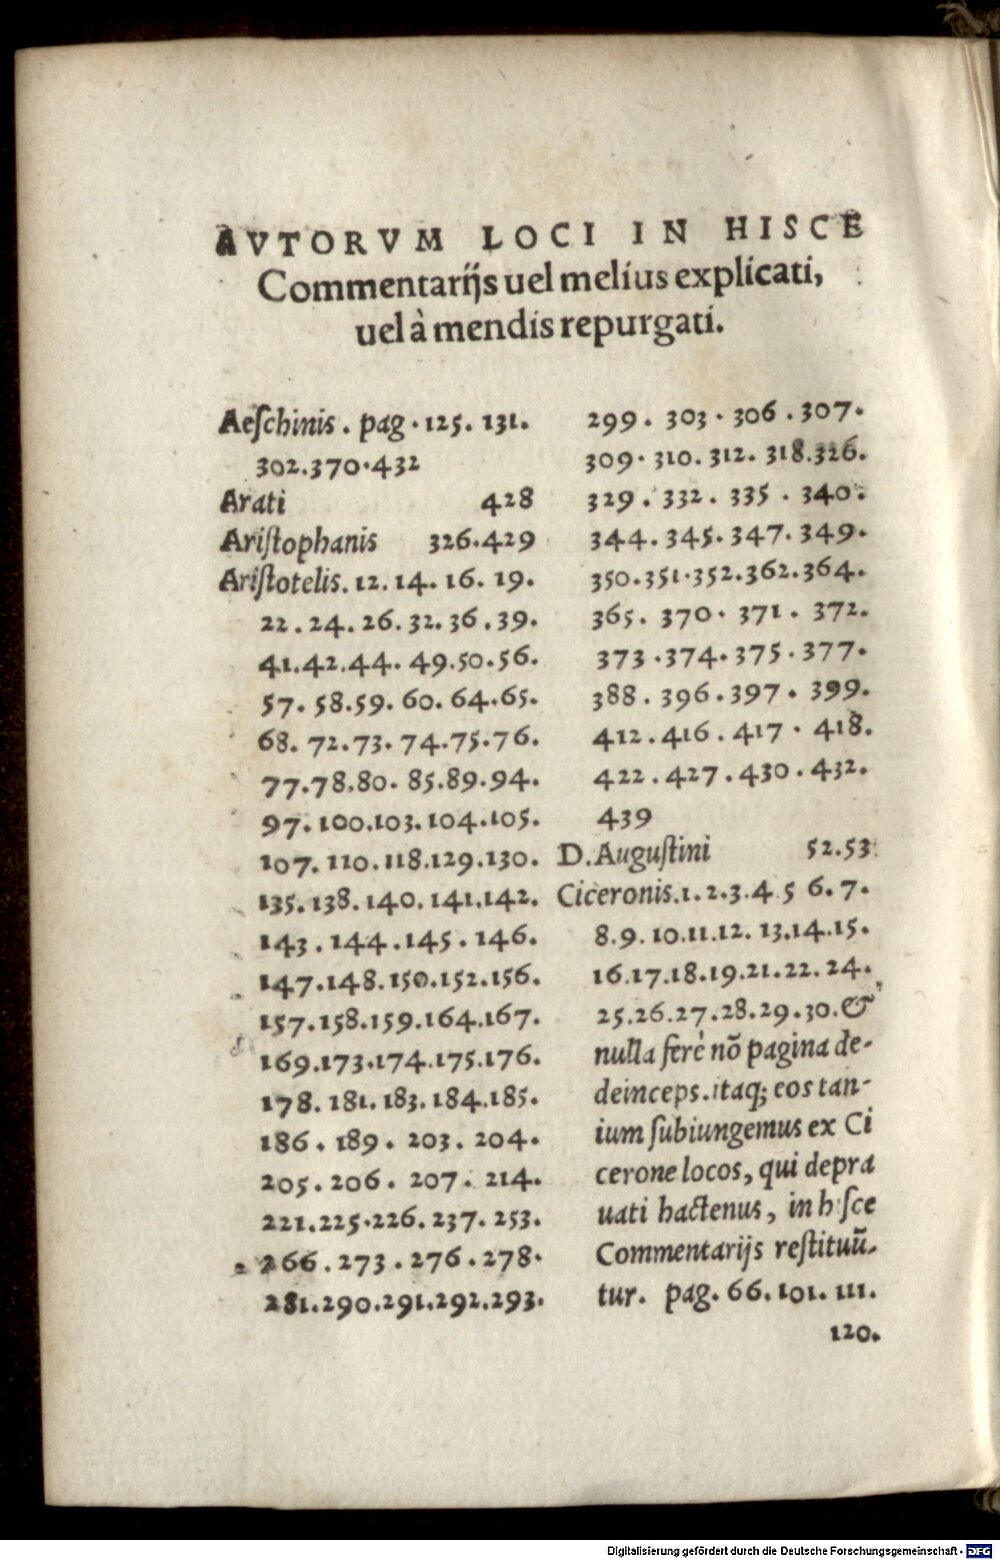 AVTORVM LOCI IN HISCE
Commentarijs uel melius explicati,
uel à mendis repurgati.
Aeſchinis. pag. 125. 131.
302.370.432
Arati 428
Ariſtophanis 326.429
Ariſtotelis. 12. 14. 16. 19.
22. 24. 26. 32. 36. 39.
41.42.44. 49.50.56.
57. 58.59. 60. 64.65.
68. 72.73. 74.75.76.
77.78.80. 85.89.94.
97.100.103.104.105.
107. 110. 118.129.130.
135. 138. 140. 141.142.
143. 144. 145. 146.
147.148.150.152.156.
157.158.159.164.167.
169.173.174.175.176.
178. 181. 183. 184.185.
186. 189. 203. 204.
205. 206. 207. 214.
221.225.226. 237. 253.
266. 273. 276. 278.
281.290.291.292.293.
299. 303. 306. 307.
309. 310. 312. 318.326.
329. 332. 335. 340.
344. 345. 347. 349.
350.351.352.362.364.
365. 370. 371. 372.
373.374.375.377.
388. 396. 397. 399.
412. 416. 417. 418.
422. 427. 430. 432.
439
D. Auguſtini 52.53.
Ciceronis.1.2.3.4 5 6. 7.
8.9. 10.11.12. 13.14.15.
16.17.18.19.21.22. 24.
25.26.27.28.29.30.&
nulla ferè nõ pagina de-
deinceps. itaq; eos tan-
ium ſubiungemus ex Ci
cerone locos, qui depra
uati hactenus, in h ſce
Commentarijs reſtituũ-
tur. pag. 66. 101. 111.
120.
Digitalisierung gefördert durch die Deutsche Forschungsgemeinschaft - DFG